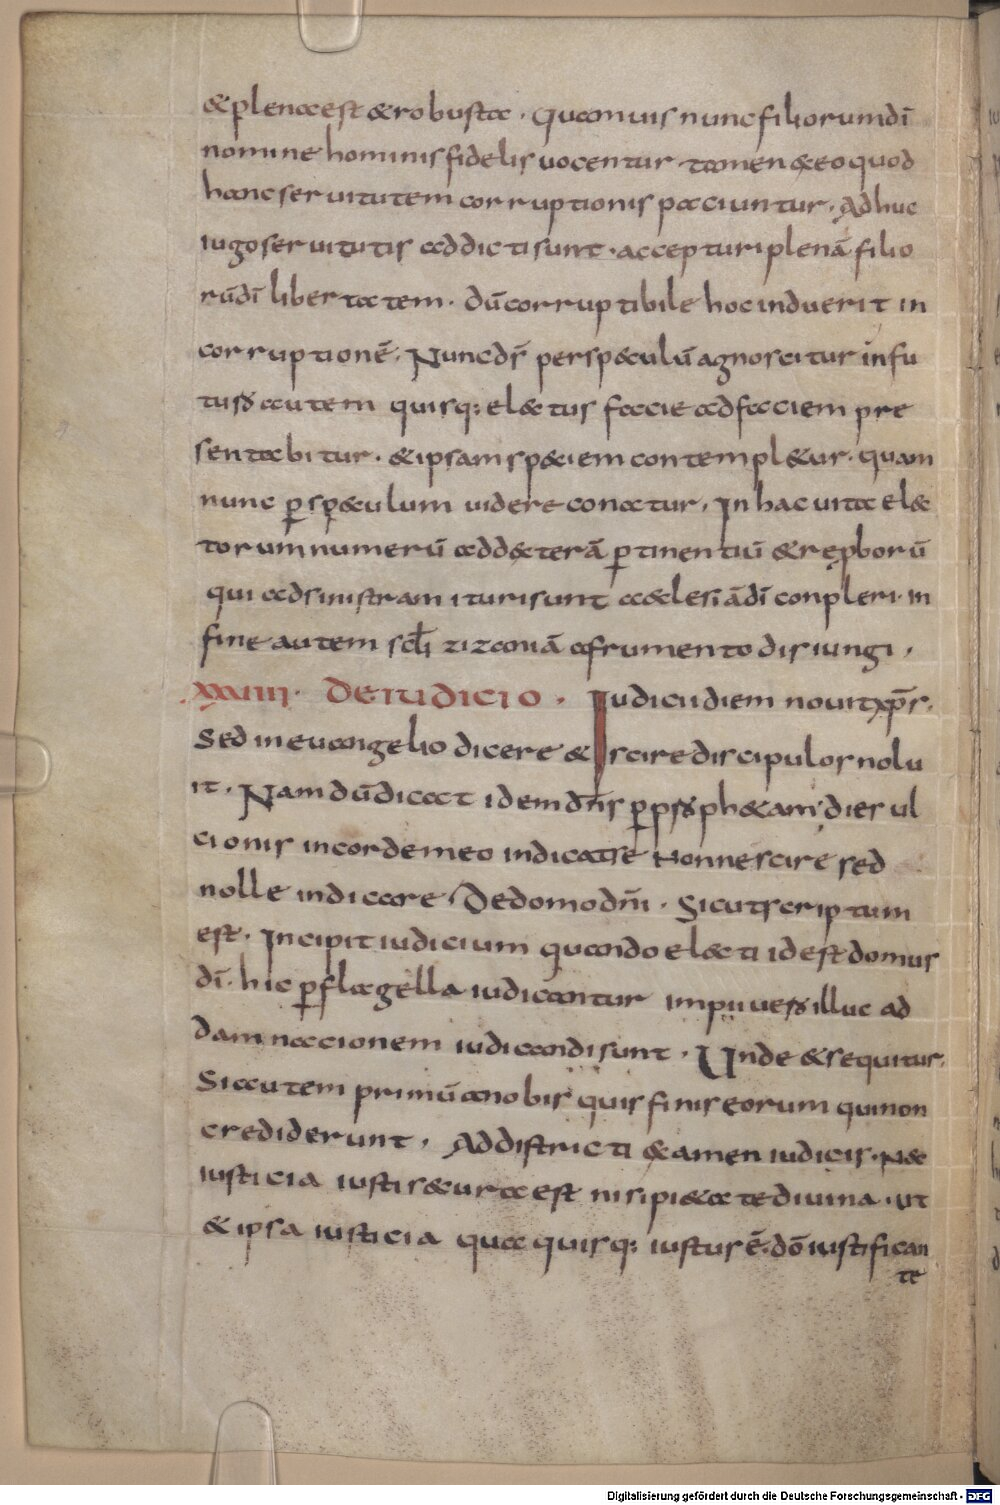 & plena est & robusta. Quamuis nunc filiorum dī
nomine hominis fidelis uocentur tamen & eo quod
hanc seruitutem corruptionis paciuntur. Adhuc
iugo seruitutis addicti sunt. accepturi plenā filio
rū dī libertatem. dū corruptibile hoc induerit in
corruptionē. Nunc ds̄ per speculū agnoscitur in fu
turo autem quisq; electus facie ad faciem pre
sentabitur. & ipsam speciem contempl&ur. quam
nunc ꝑ speculum uidere conatur. In hac uita elec
torum numerū ad dexterā ꝑtinentiū & reproborū
qui ad sinistram ituri sunt aeclesiā dī conpleri. in
fine autem sc̄li zizania a frumento disiungi.
XXVIIII. DE IUDICIO. Iudicii diem nouit xp̄s.
Sed in euangelio dicere & scire discipulos nolu
it. Nam dū dicat idem dn̄s ꝑ proph&am; dies ul
cionis in corde meo indicat se non nescire sed
nolle indicare. De domo dn̄i. Sicut scriptum
est. Incipit iudicium quando electi id est domus
dī. hic ꝑ flagella iudicantur impii uero illuc ad
damnacionem iudicandi sunt. Unde & sequitur.
Si autem primū a nobis quis finis eorum qui non
crediderunt. Ad districti & amen iudicis. Nec
iusticia iusti secura est nisi pi&ate diuina. ut
& ipsa iusticia qua quisq; iustus ē. dō iustifican
te
Digitalisierung gefördert durch die Deutsche Forschungsgemeinschaft - DFG